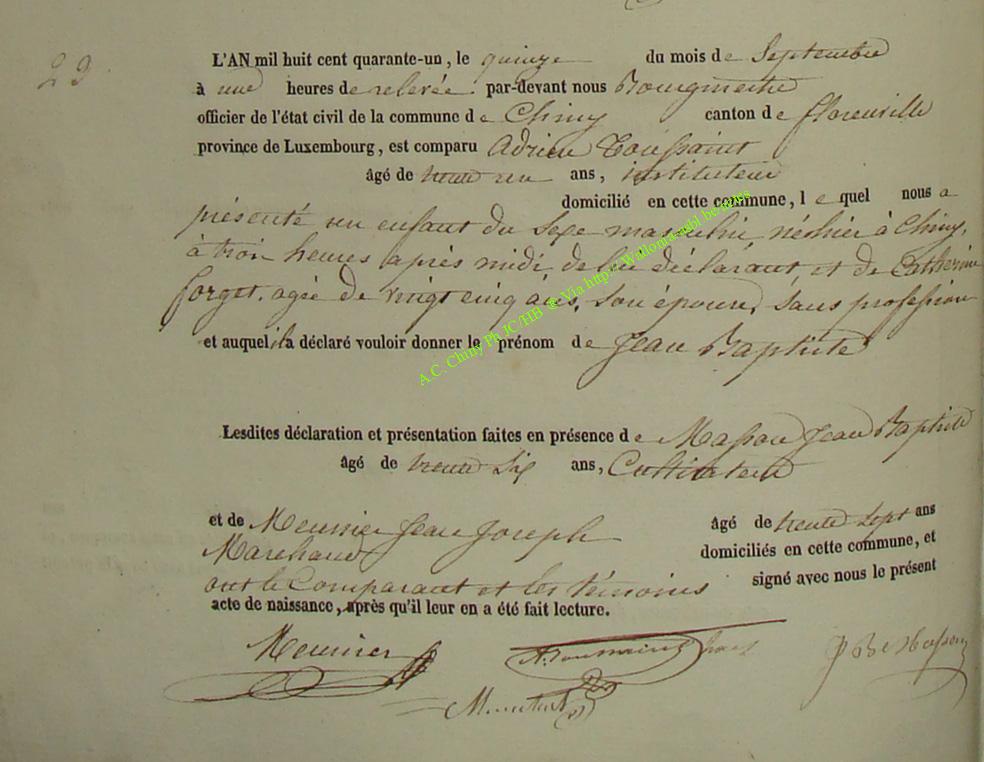 29
L'AN mil huit cent quarante-un, le quinze du mois de Septembre
à une heures de relevée par-devant nous Bourgmestre
officier de l'état civil de la commune de Chiny canton de florenville
province de Luxembourg, est comparu Adrien Toussaint
âgé de trente un ans, instituteur
domicilié en cette commune, le quel nous a
présenté un enfant du Sexe masculin, né hier à Chiny,
à trois heures après midi, de lui déclarant et de Catherine
forget, agée de vingt cinq ans, son épouse, sans profession
et auquel il a déclaré vouloir donner le prénom de Jean Baptiste
A.C. Chiny Ph JC/HB @ Via http://Wallonia-asbl be/actes
Lesdites déclaration et présentation faites en présence de Masson Jean Baptiste
âgé de trente Six ans, Cultivateur
et de Meunier Jean Joseph âgé de trente sept ans
Marchand domiciliés en cette commune, et
ont le Comparant et les témoins signé avec nous le présent
acte de naissance, après qu'il leur en a été fait lecture.
Meunier A. Toussaint J B Masson